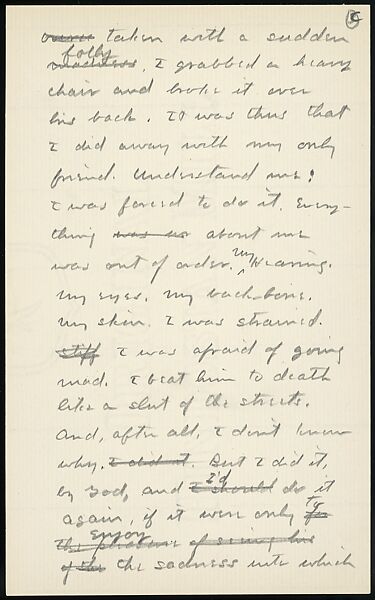 5
taken with a sudden
folly
madness. I grabbed a heavy
chair and broke it over
his back. It was thus that
I did away with my only
friend. Understand me!
I was forced to do it. Every-
thing was about me
was out of order. My Hearing.
My eyes. My back-bone.
My skin. I was strained.
stiff I was afraid of going
mad. I beat him to death
like a slut of the streets.
And, after all, I don't know
why. I did it. But I did it,
I'd
by God, and I should do it
to
again, if it were only
enjoy
the pleasure of seeing his
of the the sadness into which